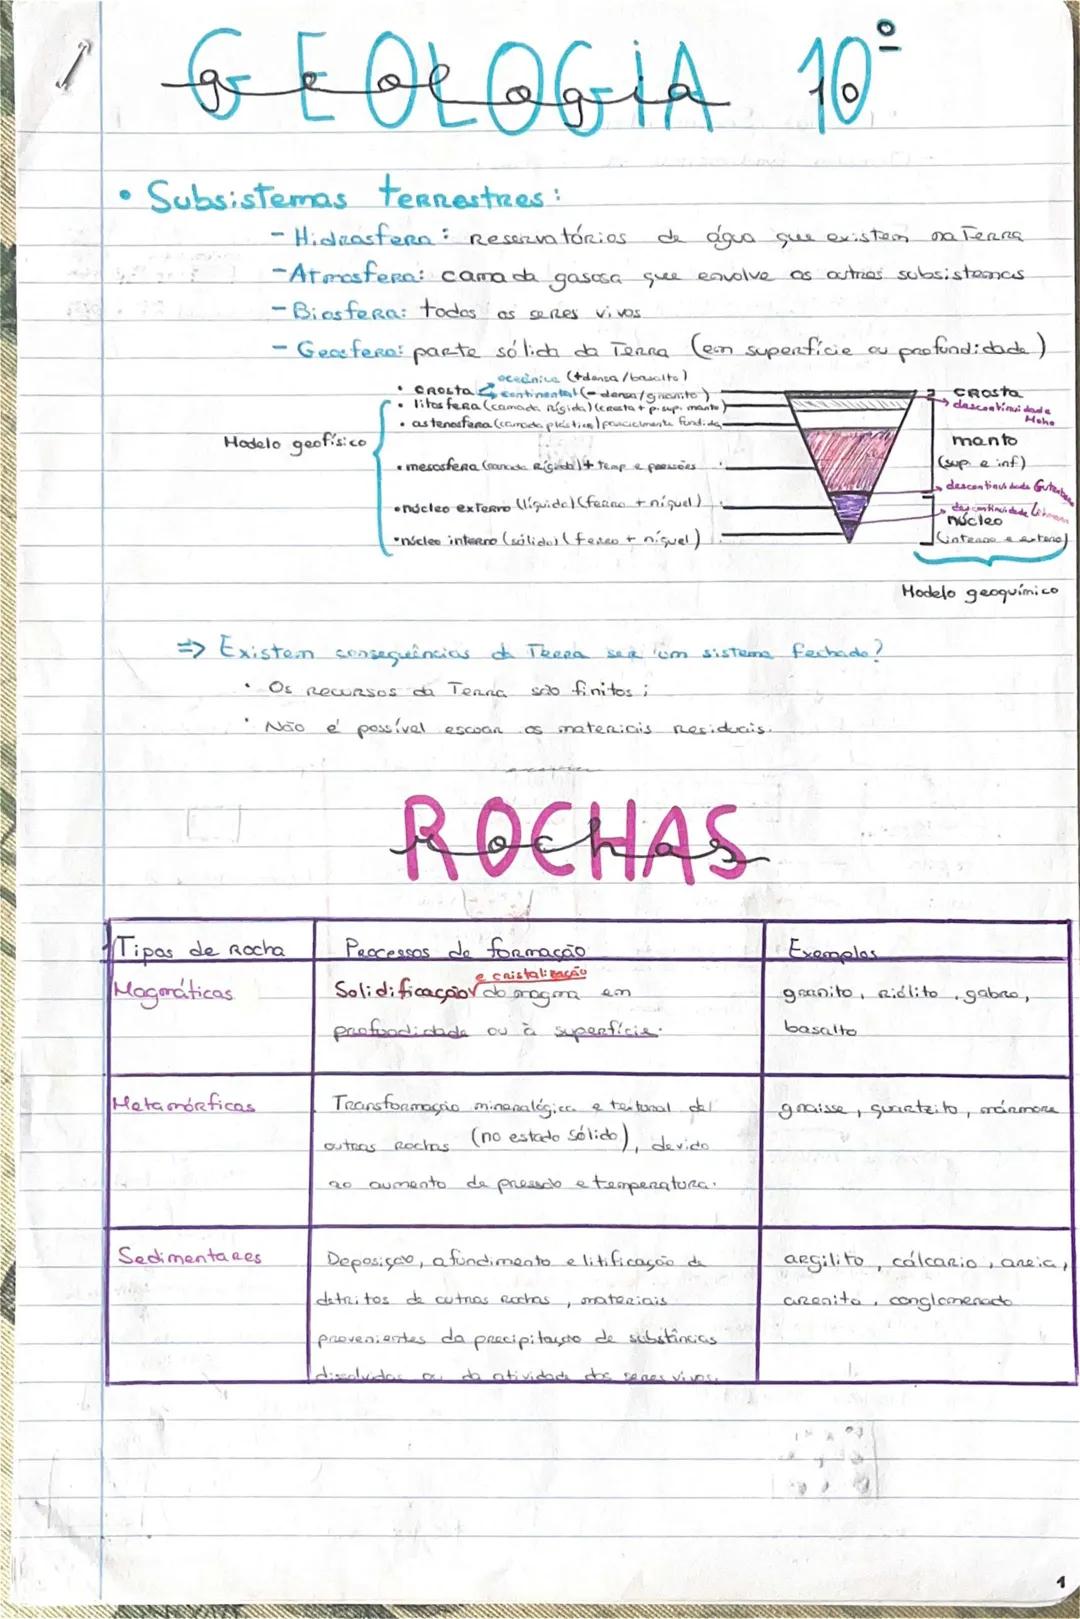 GEOLOGIA 10º
geologia
• Subsistemas terrestres:
- Hidrosfera: reservatórios de água que existem na Terra
- Atmosfera: camada gasosa que envolve os outros subsistemas
- Biosfera: todos os seres vivos
- Geosfera: parte sólida da Terra (em superfície ou profundidade)
Modelo geofísico
• crosta oceânica (+densa/basalto)
continental (-densa/granito)
• litosfera (camada rígida) (crosta + p. sup. manto)
• astenosfera (camada plástica) parcialmente fundida
• mesosfera (camada rígida) + temp e pressões
• núcleo externo (líquido) (ferro + níquel)
• núcleo interno (sólido) (ferro + níquel)
crosta
descontinuidade Moho
manto
(sup. e inf)
descontinuidade Gutenberg
descontinuidade Lehmann
núcleo
(interno e externo)
Modelo geoquímico
=> Existem consequências da Terra ser um sistema fechado?
• Os recursos da Terra são finitos;
• Não é possível escoar os materiais residuais.
ROCHAS
rochas
Tipos de rocha Processos de formação Exemplos
Magmáticas
Solidificação e cristalização do magma em
profundidade ou à superfície.
granito, riólito, gabro,
basalto
Metamórficas
Transformação mineralógica e textural de
outras rochas (no estado sólido), devido
ao aumento de pressão e temperatura.
gnaisse, quartzito, mármore
Sedimentares
Deposição, afundimento e litificação de
detritos de outras rochas, materiais
provenientes da precipitação de substâncias
dissolvidas ou da atividade dos seres vivos.
argilito, cálcario, areia,
arenito, conglomerado
1